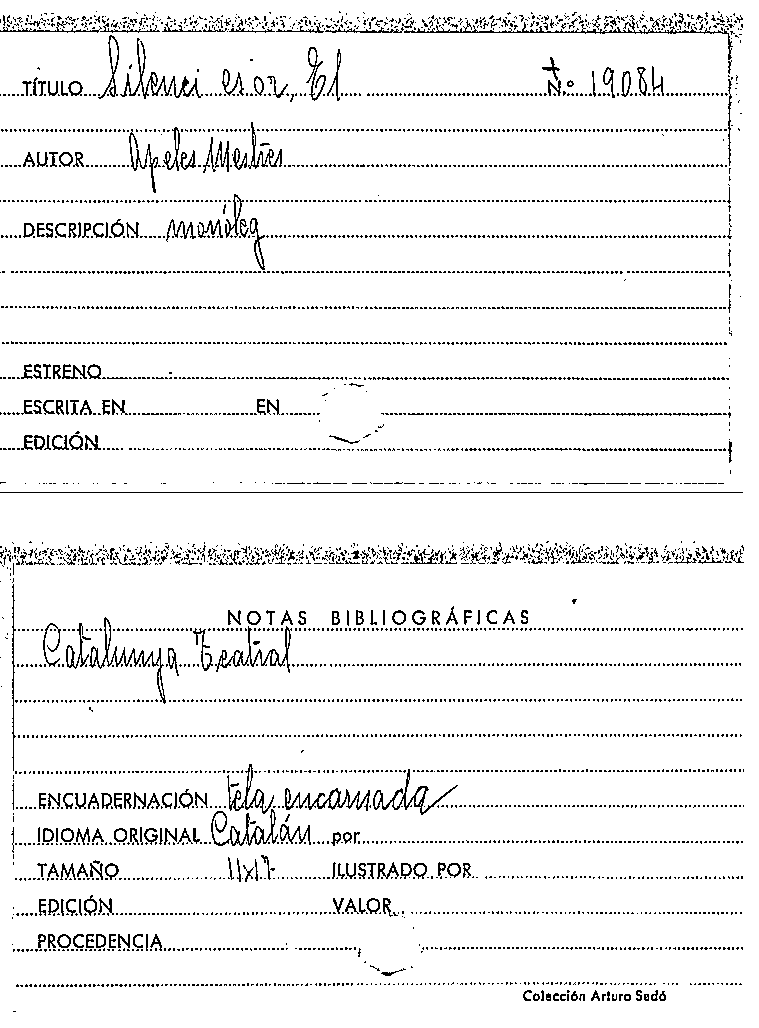 TÍTULO Silenci es or, El N.º 19084
AUTOR Apeles Mestres
DESCRIPCIÓN monóleg
ESTRENO
ESCRITA EN EN
EDICIÓN
NOTAS BIBLIOGRÁFICAS
Catalunya Teatral
ENCUADERNACIÓN tela encarnada
IDIOMA ORIGINAL Catalán por
TAMAÑO 11x17 ILUSTRADO POR
EDICIÓN VALOR
PROCEDENCIA
Colección Arturo Sedó